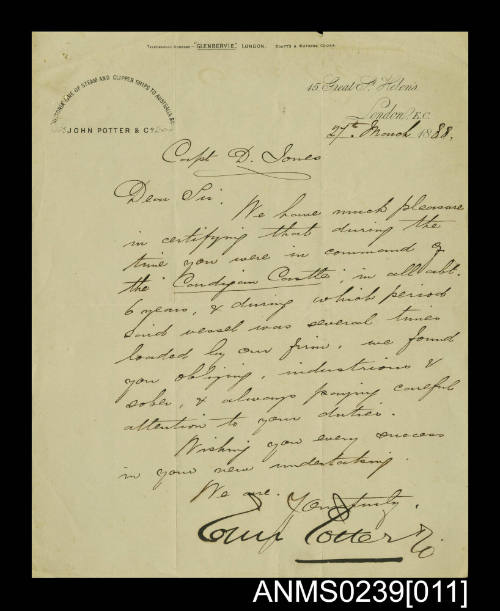 TELEGRAPHIC ADDRESS - "GLENBERVIE," LONDON. SCOTT'S & WATKINS CODES.
45, Great St. Helen's
London, E.C.
27th March 1888.
LINE OF STEAM AND CLIPPER SHIPS TO AUSTRALIA
JOHN POTTER & Co
Capt D. Jones
Dear Sir.
We have much pleasure
in certifying that during the
time you were in command of
the "Cardigan Castle", in all abt.
6 years, & during which period
said vessel was several times
loaded by our firm, we found
you obliging, industrious &
sober, & always paying careful
attention to your duties.
Wishing you every success
in your new undertaking.
We are.
Potter & Co
ANMS0239[011]